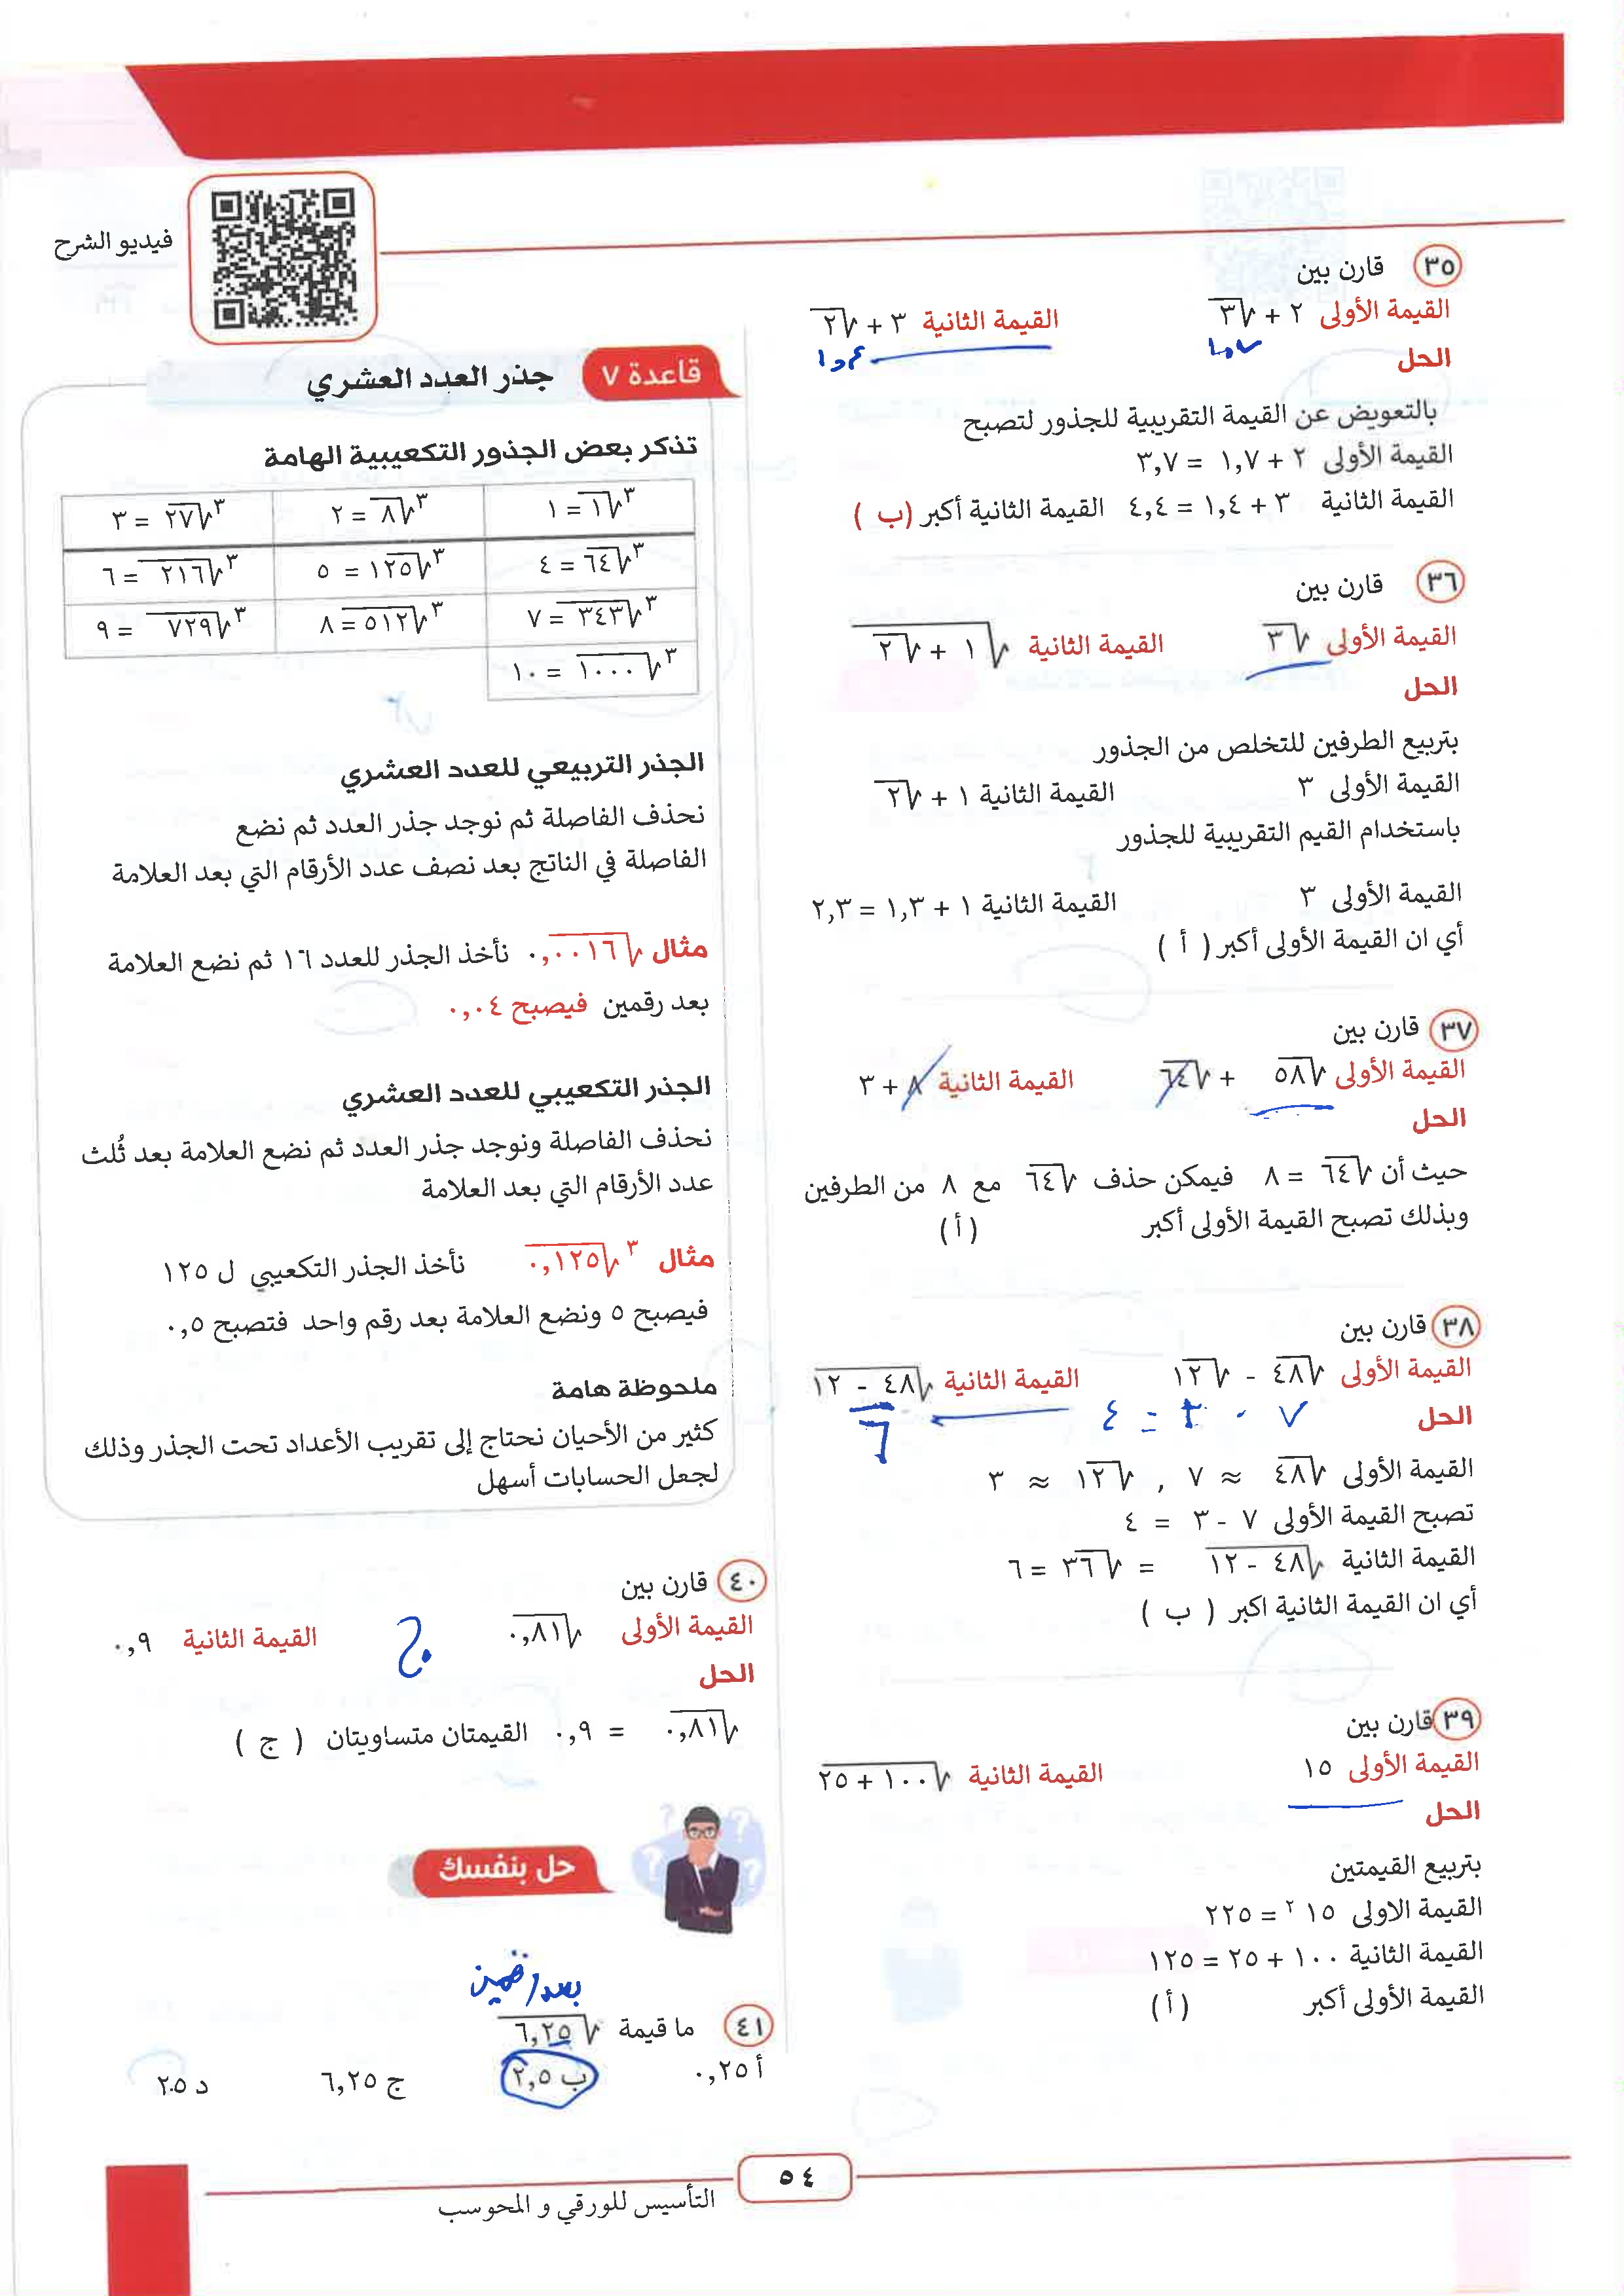 فيديو الشرح
٣٥ قارن بين
القيمة الأولى ٢ + √٣ القيمة الثانية ٣ + √٢
١,٧ ١,٤
الحل
بالتعويض عن القيمة التقريبية للجذور لتصبح
القيمة الأولى ٢ + ١,٧ = ٣,٧
القيمة الثانية ٣ + ١,٤ = ٤,٤ القيمة الثانية أكبر (ب )
٣٦ قارن بين
القيمة الأولى √٣ القيمة الثانية √(١ + √٢)
الحل
بتربيع الطرفين للتخلص من الجذور
القيمة الأولى ٣ القيمة الثانية ١ + √٢
باستخدام القيم التقريبية للجذور
القيمة الأولى ٣ القيمة الثانية ١ + ١,٣ = ٢,٣
أي ان القيمة الأولى أكبر ( أ )
٣٧ قارن بين
القيمة الأولى √٥٨ + √٦٤ القيمة الثانية ٨ + ٣
الحل
حيث أن √٦٤ = ٨ فيمكن حذف √٦٤ مع ٨ من الطرفين
وبذلك تصبح القيمة الأولى أكبر (أ)
٣٨ قارن بين
القيمة الأولى √٤٨ - √١٢ القيمة الثانية √(٤٨ - ١٢)
٧ - ٣ = ٤ ٦
الحل
القيمة الأولى √٤٨ ≈ ٧ , √١٢ ≈ ٣
تصبح القيمة الأولى ٧ - ٣ = ٤
القيمة الثانية √(٤٨ - ١٢) = √٣٦ = ٦
أي ان القيمة الثانية اكبر ( ب )
٣٩ قارن بين
القيمة الأولى ١٥ القيمة الثانية √(١٠٠ + ٢٥)
الحل
بتربيع القيمتين
القيمة الاولى ١٥² = ٢٢٥
القيمة الثانية ١٠٠ + ٢٥ = ١٢٥
القيمة الأولى أكبر (أ)
قاعدة ٧ جذر العدد العشري
تذكر بعض الجذور التكعيبية الهامة
∛١ = ١ ∛٨ = ٢ ∛٢٧ = ٣
∛٦٤ = ٤ ∛١٢٥ = ٥ ∛٢١٦ = ٦
∛٣٤٣ = ٧ ∛٥١٢ = ٨ ∛٧٢٩ = ٩
∛١٠٠٠ = ١٠
الجذر التربيعي للعدد العشري
نحذف الفاصلة ثم نوجد جذر العدد ثم نضع
الفاصلة في الناتج بعد نصف عدد الأرقام التي بعد العلامة
مثال √٠,٠٠١٦ نأخذ الجذر للعدد ١٦ ثم نضع العلامة
بعد رقمين فيصبح ٠,٠٤
الجذر التكعيبي للعدد العشري
نحذف الفاصلة ونوجد جذر العدد ثم نضع العلامة بعد ثُلث
عدد الأرقام التي بعد العلامة
مثال ∛٠,١٢٥ نأخذ الجذر التكعيبي ل ١٢٥
فيصبح ٥ ونضع العلامة بعد رقم واحد فتصبح ٠,٥
ملحوظة هامة
كثير من الأحيان نحتاج إلى تقريب الأعداد تحت الجذر وذلك
لجعل الحسابات أسهل
٤٠ قارن بين
القيمة الأولى √٠,٨١ القيمة الثانية ٠,٩
ج
الحل
√٠,٨١ = ٠,٩ القيمتان متساويتان ( ج )
حل بنفسك
بعد رقمين
٤١ ما قيمة √٦,٢٥
أ ٠,٢٥ ب ٢,٥ ج ٦,٢٥ د ٢٠٥
٥٤
التأسيس للورقي و المحوسب